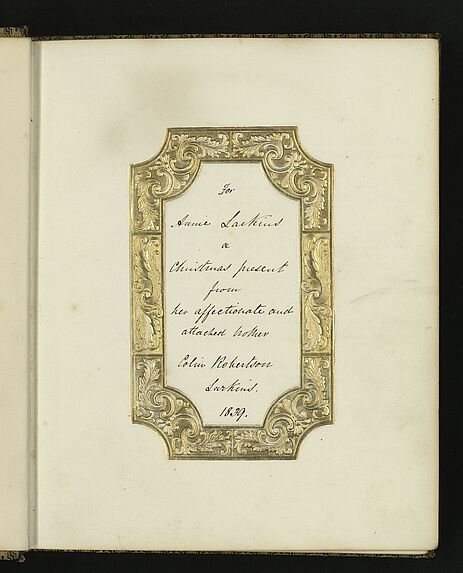 For
Annie Larkins
a
Christmas present
from
her affectionate and
attached brother
Colin Robertson
Larkins.
1839.